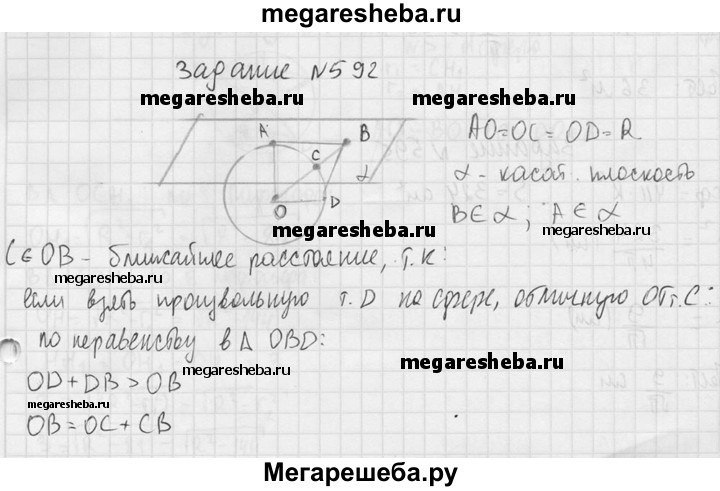 megaresheba.ru
Задание №592
megaresheba.ru megaresheba.ru
A B C α O D
AO=OC=OD=R
α - касат. плоскость
B∈α; A∈α
megaresheba.ru
C∈OB - ближайшее расстояние, т.к:
megaresheba.ru megaresheba.ru
если взять произвольную т. D на сфере, отличную от т. C:
по неравенству в Δ OBD:
megaresheba.ru megaresheba.ru
OD+DB>OB
megaresheba.ru
OB=OC+CB
Мегарешеба.ру